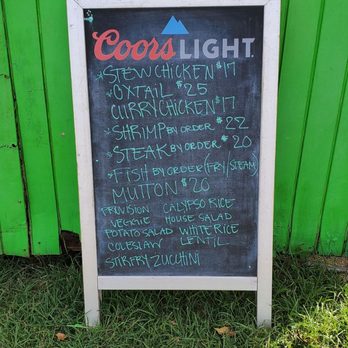 Coors LIGHT
*STEW CHICKEN $17
*OXTAIL $25
CURRY CHICKEN $17
*SHRIMP BY ORDER $22
*STEAK BY ORDER $20
*FISH BY ORDER (FRY/STEAM)
MUTTON $20
PROVISION CALYPSO RICE
VEGGIE HOUSE SALAD
POTATO SALAD WHITE RICE
COLESLAW LENTIL
STIRFRY ZUCCHINI